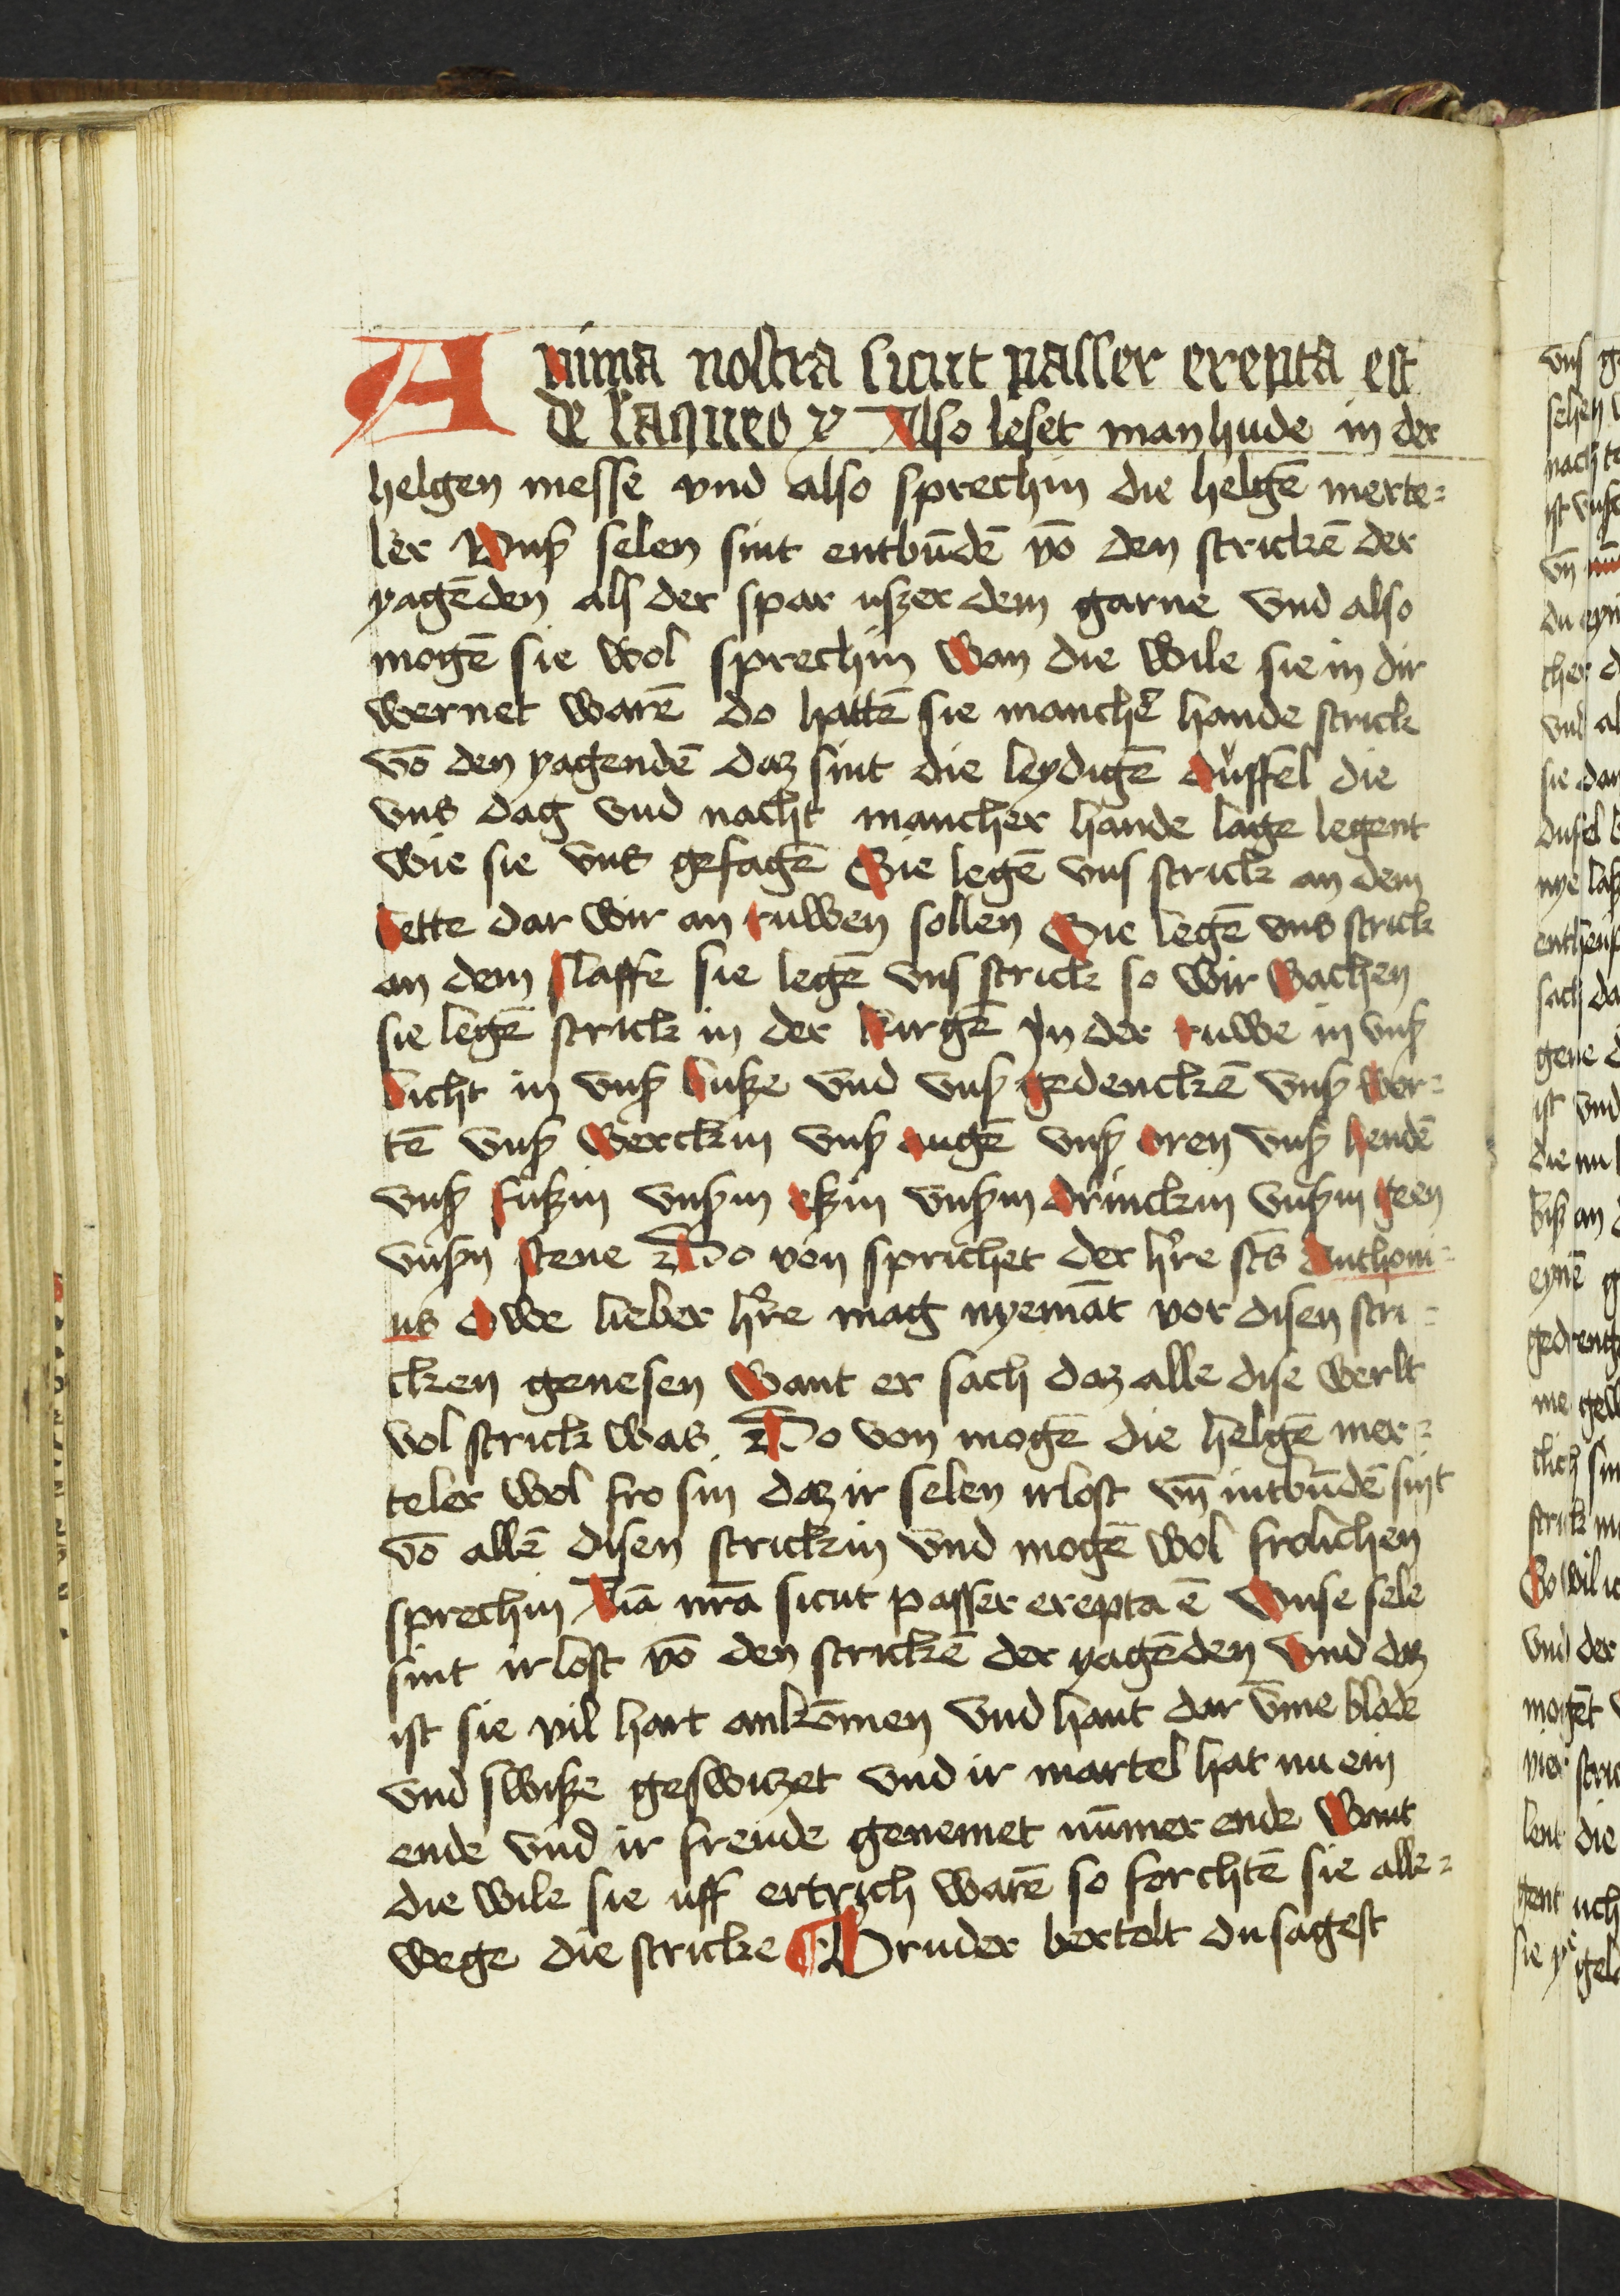 Anima nostra sicut passer erepta est
de laqueo ꝛc Also leset man hude in der
helgen messe vnd also sprechin die helgē merte⸗
ler Vnß selen sint entbūdē vō den strickē der
yagēden als der spar uszer dem garne vnd also
mogē sie wol sprechin wan die wile sie in dir
wernet warē do hattē sie manchẽ hande strick
vō den yagendē daz sint die leydigē duffel die
vns dag vnd nacht mancher hande lage legent
wie sie vns gefagē Sie legē vns strick an dem
bette dar wir an ruwen sollen Sie legē vns strick
an dem slaffe sie legē vns strick so wir wachen
sie legē strick in der kirgē In der ruwe in vnß
bicht in vnß buße vnd vnß gedenckē vnß wor⸗
tē vnß werckin vnß augē vnß oren vnß hendē
vnß fußin vnßm eßin vnßm drinckin vnßm geen
vnßn stene Do von sprichet der h're scūs Anthoni⸗
us owe lieber h're mag nyemāt vor disen stri⸗
cken genesen want er sach daz alle dise werlt
vol strick was Do von mogē die helgē mer⸗
teler wol fro sin daz ir selen irlost vn̄ intbūdē sint
vō allē disen strickin vnd mogē wol frolichen
sprechin Aīa nr̄a sicut passer erepta ē Vnse sele
sint irlost vō den strickē der yagēden vnd daz
ist sie vil hart ankōmen vnd hant dar vme blode
vnd swiße geswitzet vnd ir martel hat nu ein
ende vnd ir freude genemet nūmer ende want
die wile sie uff ertrich warē so forchtē sie alle⸗
wege die stricke ¶ Bruder bertolt du sagest